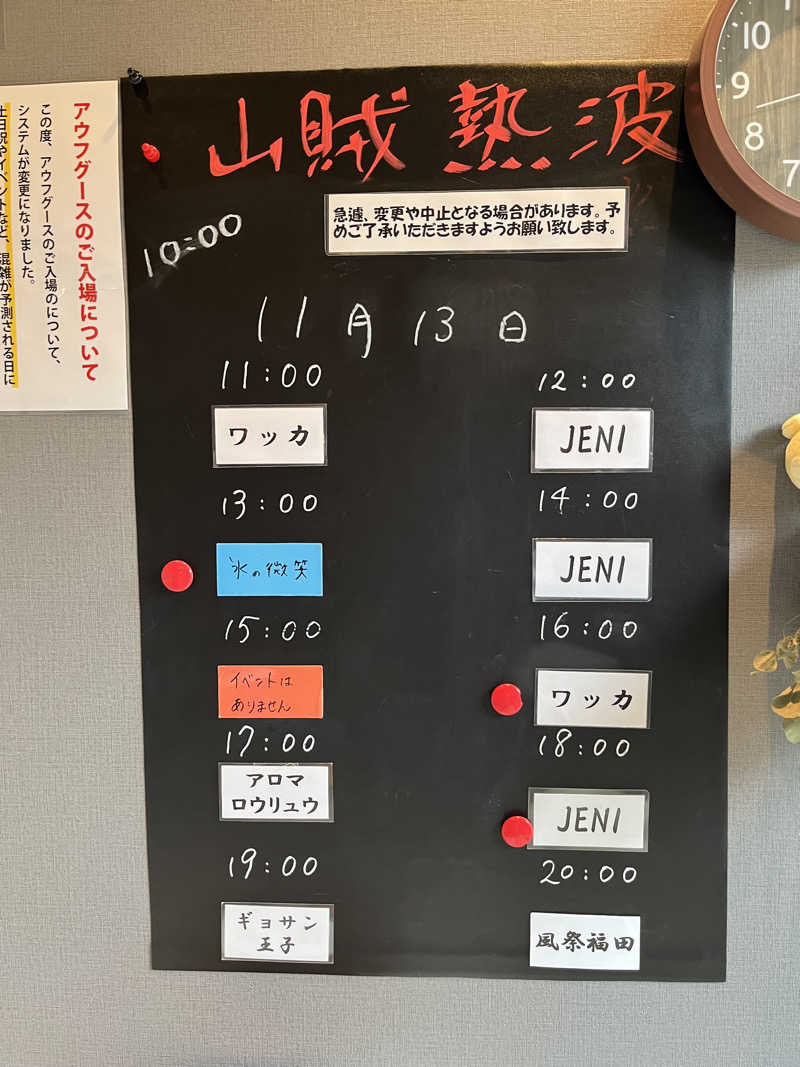 山賊熱波
急遽、変更や中止となる場合があります。予
めご了承いただきますようお願い致します。
10:00
11月13日
11:00
ワッカ
12:00
JENI
13:00
氷の微笑
14:00
JENI
15:00
イベントは
ありません
16:00
ワッカ
17:00
アロマ
ロウリュウ
18:00
JENI
19:00
ギョサン
王子
20:00
風祭福田
アウフグースのご入場について
この度、アウフグースのご入場のについて、
システムが変更になりました。
土日祝やイベントなど、混雑が予測される日に
10
9
8
7